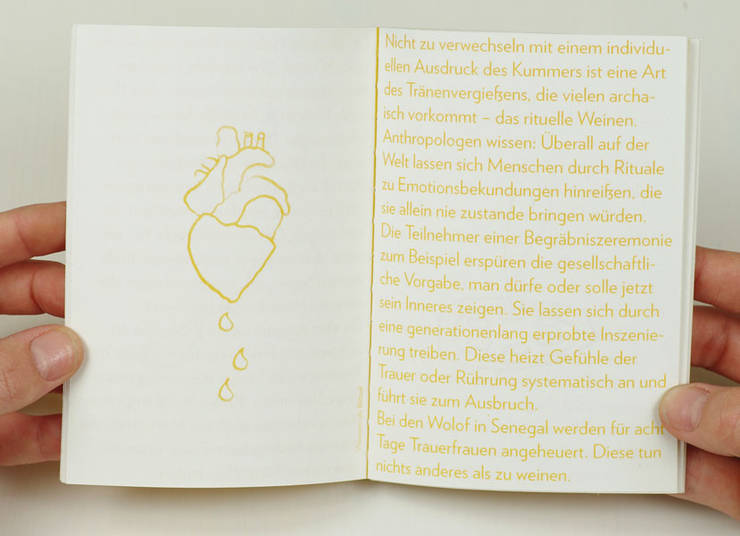 Nicht zu verwechseln mit einem individu-
ellen Ausdruck des Kummers ist eine Art
des Tränenvergießens, die vielen archa-
isch vorkommt – das rituelle Weinen.
Anthropologen wissen: Überall auf der
Welt lassen sich Menschen durch Rituale
zu Emotionsbekundungen hinreißen, die
sie allein nie zustande bringen würden.
Die Teilnehmer einer Begräbniszeremonie
zum Beispiel erspüren die gesellschaftli-
che Vorgabe, man dürfe oder solle jetzt
sein Inneres zeigen. Sie lassen sich durch
eine generationenlang erprobte Inszenie-
rung treiben. Diese heizt Gefühle der
Trauer oder Rührung systematisch an und
führt sie zum Ausbruch.
Bei den Wolof in Senegal werden für acht
Tage Trauerfrauen angeheuert. Diese tun
nichts anderes als zu weinen.